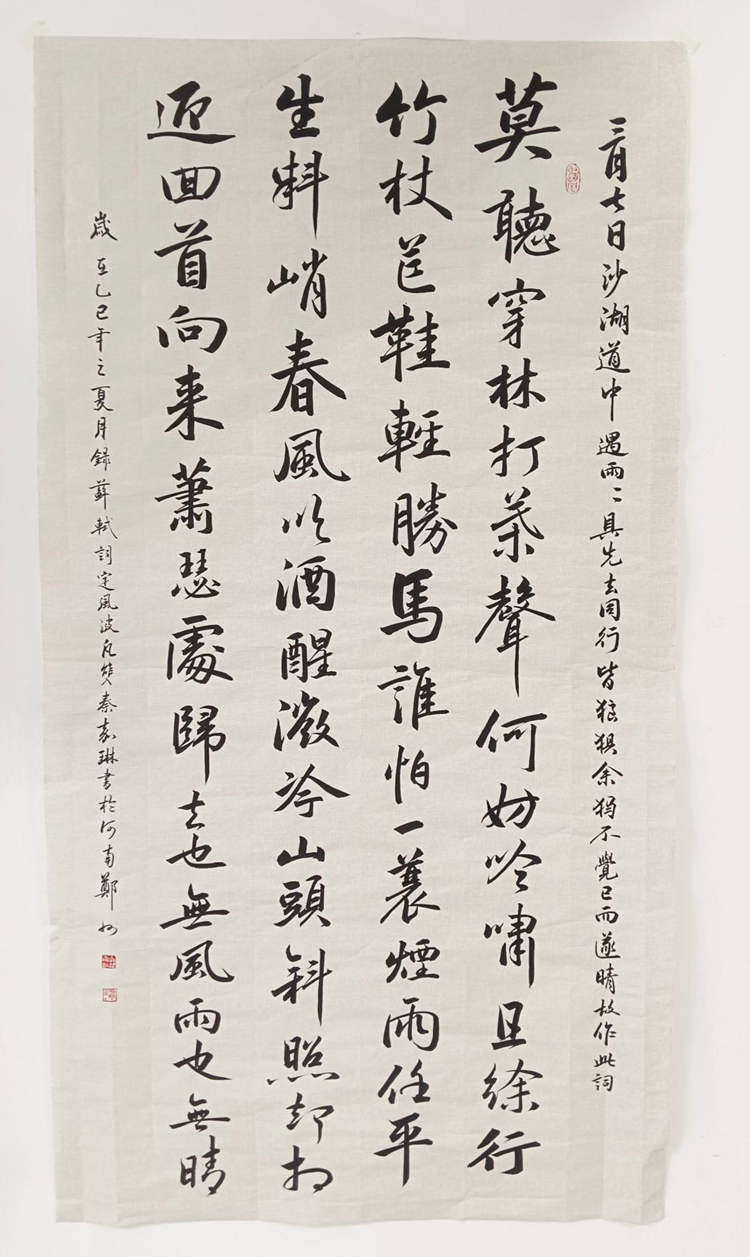 三月七日沙湖道中遇雨雨具先去同行皆狼狽余獨不覺已而遂晴故作此詞
莫聽穿林打葉聲何妨吟嘯且徐行
竹杖芒鞋輕勝馬誰怕一蓑煙雨任平
生料峭春風吹酒醒微冷山頭斜照却相
迎回首向来蕭瑟處歸去也無風雨也無晴
歲在乙巳年之夏月録蘇軾詞定風波秦嘉琳書於河南鄭州